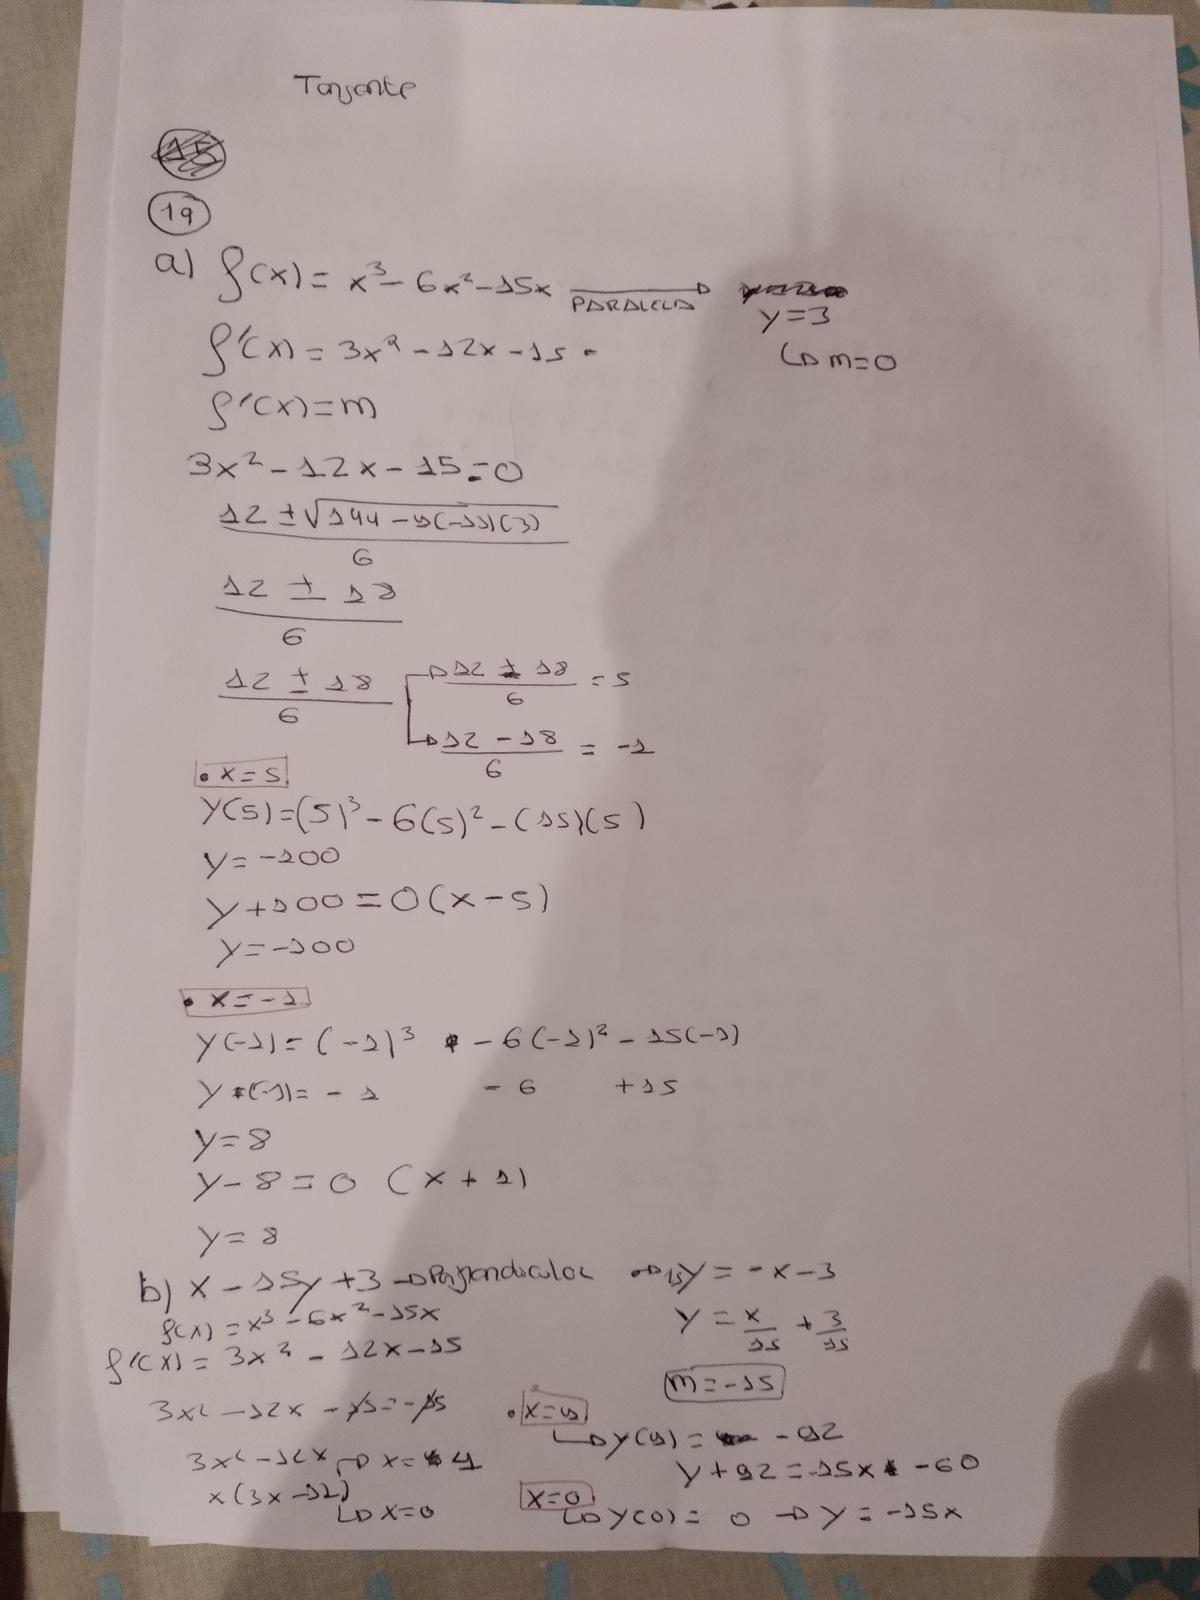 Tangente
19
a) f(x) = x³ - 6x² - 15x PARALELA y = 3
f'(x) = 3x² - 12x - 15 ↳ m = 0
f'(x) = m
3x² - 12x - 15 = 0
12 ± √144 - 4(-15)(3) / 6
12 ± 18 / 6
12 ± 18 / 6 → 12 + 18 / 6 = 5
→ 12 - 18 / 6 = -1
• x = 5
y(5) = (5)³ - 6(5)² - (15)(5)
y = -100
y + 100 = 0(x - 5)
y = -100
• x = -1
y(-1) = (-1)³ - 6(-1)² - 15(-1)
y(-1) = - 1 - 6 + 15
y = 8
y - 8 = 0 (x + 1)
y = 8
b) x - 15y + 3 → Perpendicular → 15y = -x - 3
f(x) = x³ - 6x² - 15x y = x/15 + 3/15
f'(x) = 3x² - 12x - 15
m = -15
3x² - 12x - 15 = -15 • x = 4
↳ y(4) = -92
3x² - 12x → x = 4 y + 92 = -15x - 60
x(3x - 12) x = 0
↳ x = 0 ↳ y(0) = 0 → y = -15x